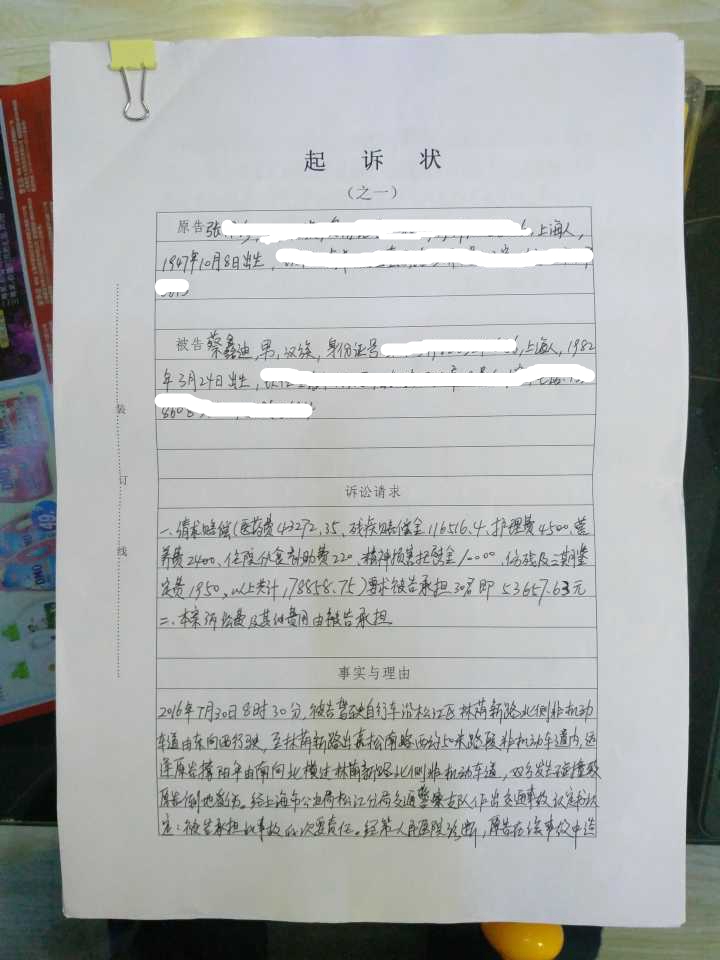 起诉状
(之一)
原告张 上海人,
1947年10月8日出生,
被告蔡鑫迪,男,汉族,身份证号 上海人,1982
年3月24日出生,
装
订
线
诉讼请求
一.请求赔偿(医药费43272.35、残疾赔偿金116516.4、护理费4500、营
养费2400、住院伙食补助费220、精神损害抚慰金10000、伤残及三期鉴
定费1950、以上共计178858.75)要求被告承担30%即53657.63元
二.本案诉讼费及其他费用由被告承担
事实与理由
2016年7月30日8时30分,被告驾驶自行车沿松江区林荫新路北侧非机动
车道由东向西行驶,至林荫新路出嘉松南路西约50米路段非机动车道内,适
逢原告撑阳伞由南向北横过林荫新路北侧非机动车道,双方发生碰撞致
原告倒地受伤。经上海市公安局松江分局交通警察支队作出交通事故认定书认
定:被告承担此事故的次要责任。经第一人民医院诊断,原告在该事故中造